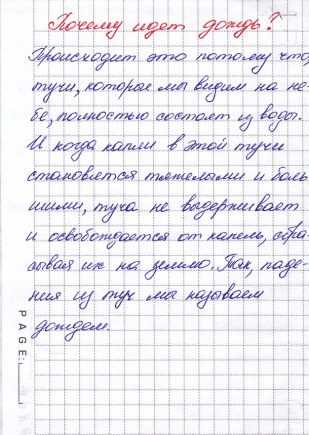 Почему идет дождь?
Происходит это потому что,
тучи, которое мы видим на не-
бе, полностью состоят из воды.
И когда капли в этой тучи
становятся тяжелыми и боль
шими, туча не выдерживает
и освобождается от капель, сбра-
сывая их на землю. Так, паде-
ния из туч мы называем
дождем.
PAGE: